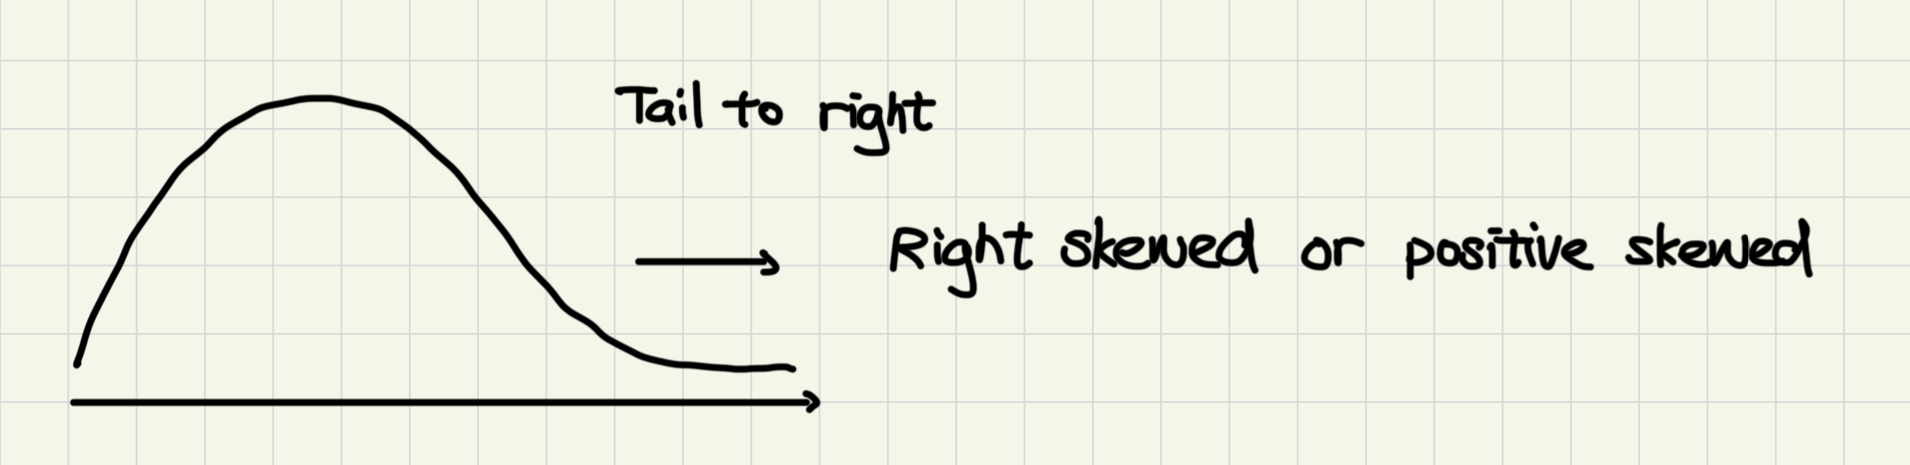 Tail to right
Right skewed or positive skewed